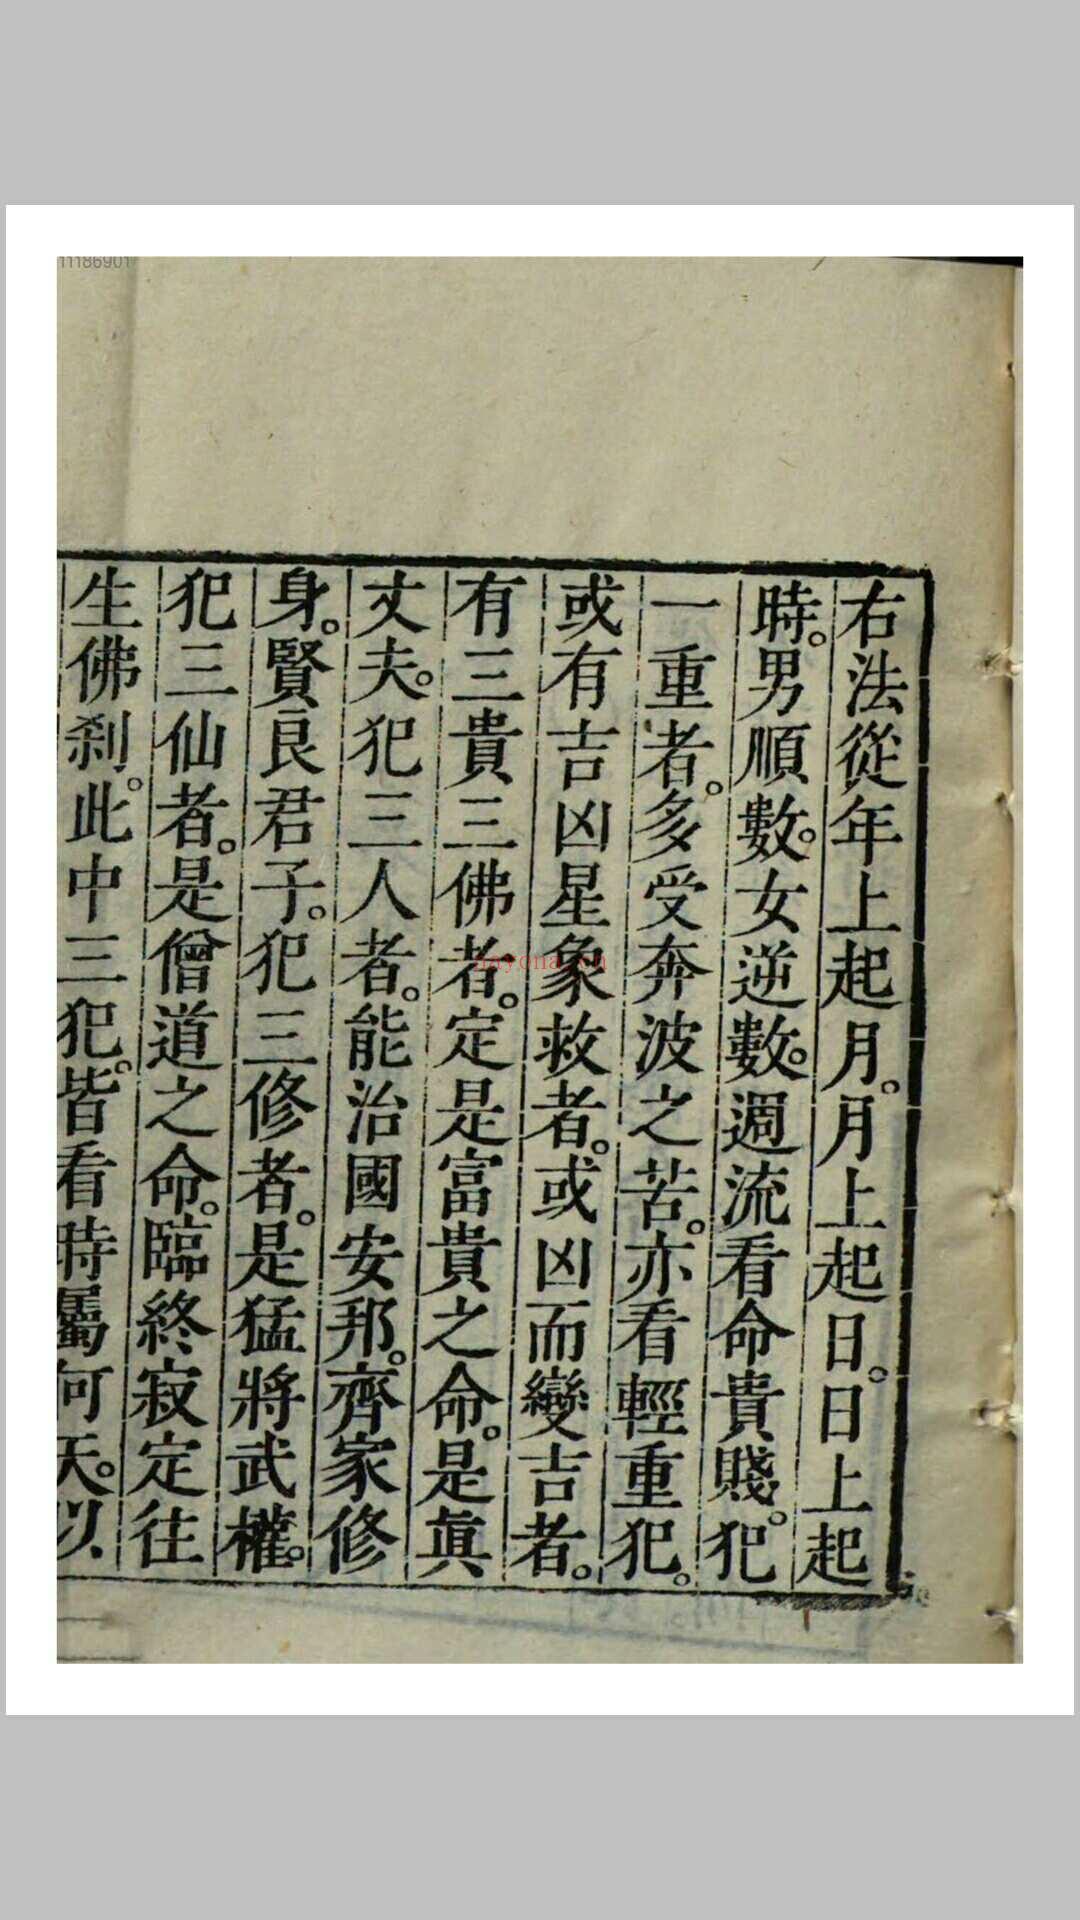 11186901
右法從年上起月。月上起日。日上起
時。男順數。女逆數。週流看命貴賤。犯
一重者。多受奔波之苦。亦看輕重犯。
或有吉凶星象救者。或凶而變吉者。
有三貴三佛者。定是富貴之命。是眞
丈夫。犯三人者。能治國安邦。齊家修
身。賢良君子。犯三修者。是猛將武權。
犯三仙者。是僧道之命。臨終寂定往
生佛刹。此中三犯。皆看時屬何天。以